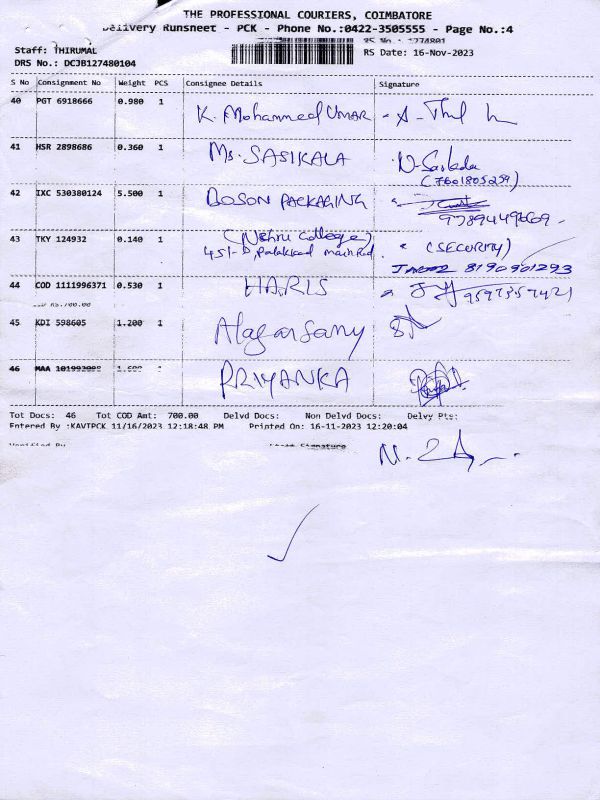 THE PROFESSIONAL COURIERS, COIMBATORE
Delivery Runsheet - PCK - Phone No.:0422-3505555 - Page No.:4
Staff: THIRUMAL RS No.: 1274801
DRS No.: DCJB127480104 RS Date: 16-Nov-2023
S No Consignment No Weight PCS Consignee Details Signature
40 PGT 6918666 0.980 1 K. Mohammed Umar
41 HSR 2898686 0.360 1 Ms. SASIKALA
(7601805259)
42 IXC 530380124 5.500 1 BOSON PACKAGING
9789449609
43 TKY 124932 0.140 1 (Nehru College) (SECURITY)
451-D, Palakkad main Rd. 8190901293
44 COD 1111996371 0.530 1 HARIS 9597359421
RS.700.00
45 KDI 598605 1.200 1 Alagarsamy
46 MAA 1 PRIYANKA
Tot Docs: 46 Tot COD Amt: 700.00 Delvd Docs: Non Delvd Docs: Delvy Pts:
Entered By :KAVTPCK 11/16/2023 12:18:48 PM Printed On: 16-11-2023 12:20:04
Verified By Signature